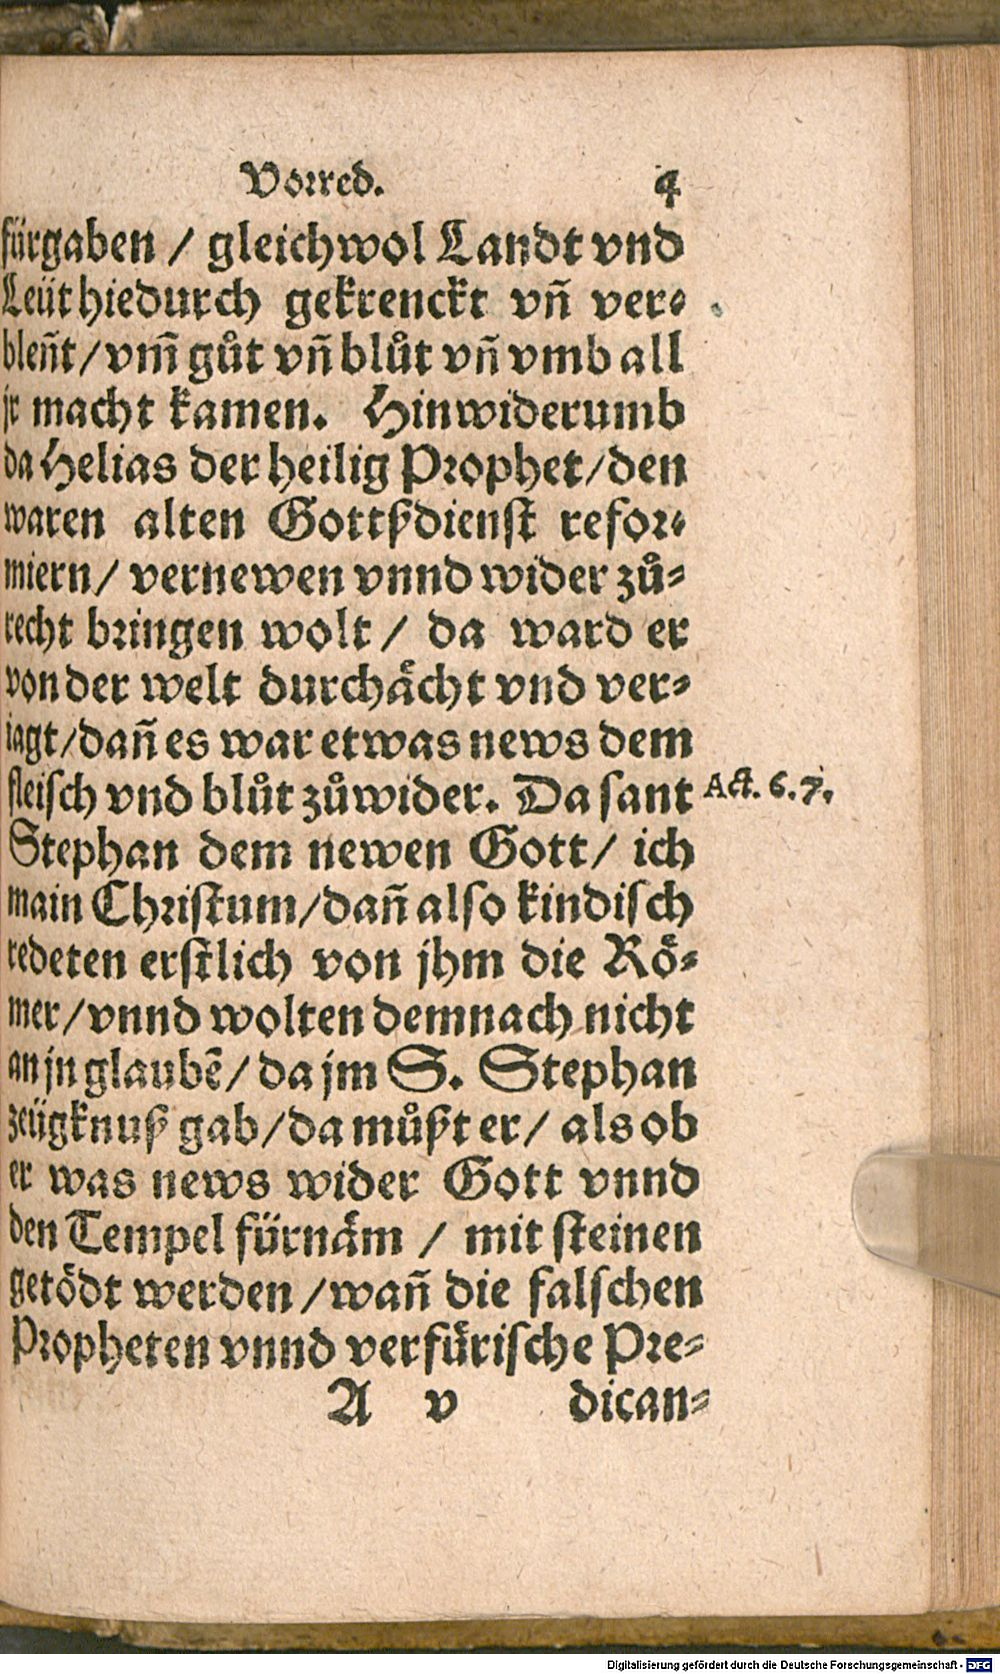 Vorred. 4
fürgaben / gleichwol Landt vnd
Leüt hiedurch gekrenckt vñ ver-
bleñt / vm̃ gůt vñ blůt vñ vmb all
jr macht kamen. Hinwiderumb
da Helias der heilig Prophet / den
waren alten Gottßdienst refor-
miern / vernewen vnnd wider zů-
recht bringen wolt / da ward er
von der welt durchaͤcht vnd ver-
iagt / dañ es war etwas news dem
fleisch vnd blůt zůwider. Da sant Act. 6. 7.
Stephan dem newen Gott / ich
main Christum / dañ also kindisch
redeten erstlich von jhm die Roͤ-
mer / vnnd wolten demnach nicht
an jn glaubẽ / da jm S. Stephan
zeügknuß gab / da můßt er / als ob
er was news wider Gott vnnd
den Tempel fürnaͤm / mit steinen
getoͤdt werden / wañ die falschen
Propheten vnnd verfuͤrische Pre-
A v dican-
Digitalisierung gefördert durch die Deutsche Forschungsgemeinschaft - DFG